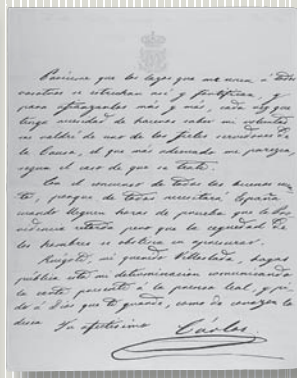 Quisiera que los lazos que me unen á todos
vosotros se estrechen así y fortifiquen, y
para afianzarlos más y más, cada vez que
tenga necesidad de haceros saber mi voluntad
me valdré de uno de los fieles servidores de
la Causa, el que más adecuado me parezca,
segun el caso de que se trate.
Con el concurso de todos los buenos
porque de todos necesitará España
cuando lleguen horas de prueba que la Pro-
videncia retarda pero que la ceguedad de
los hombres se obstina en apresurar.
Ruégote, mi querido Villadarias, hagas
pública esta mi determinacion comunicando
la carta presente á la prensa leal, y pi-
do á Dios que te guarde, como de corazon lo
desea Tu afectísimo Cárlos.